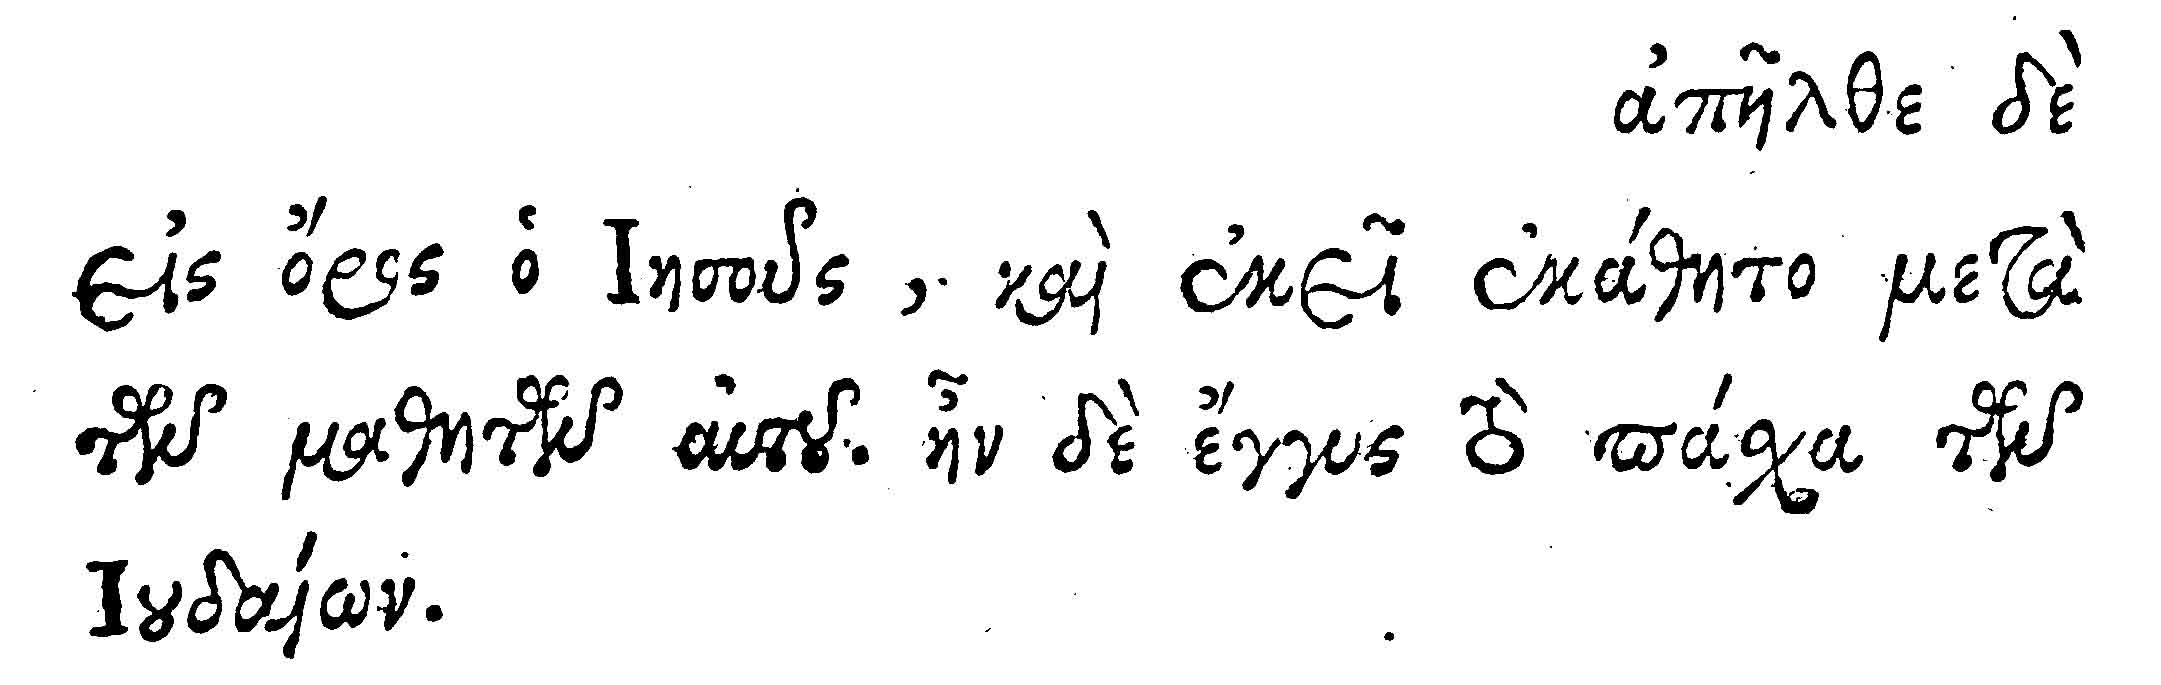 ἀπῆλθε δὲ
εἰς ὄρος ὁ Ιησους, καὶ ἐκεῖ ἐκάθητο μετὰ
τῶν μαθητῶν αὐτου. ἦν δὲ ἔγγυς τὸ πάσχα τῶν
Ιουδαίων.